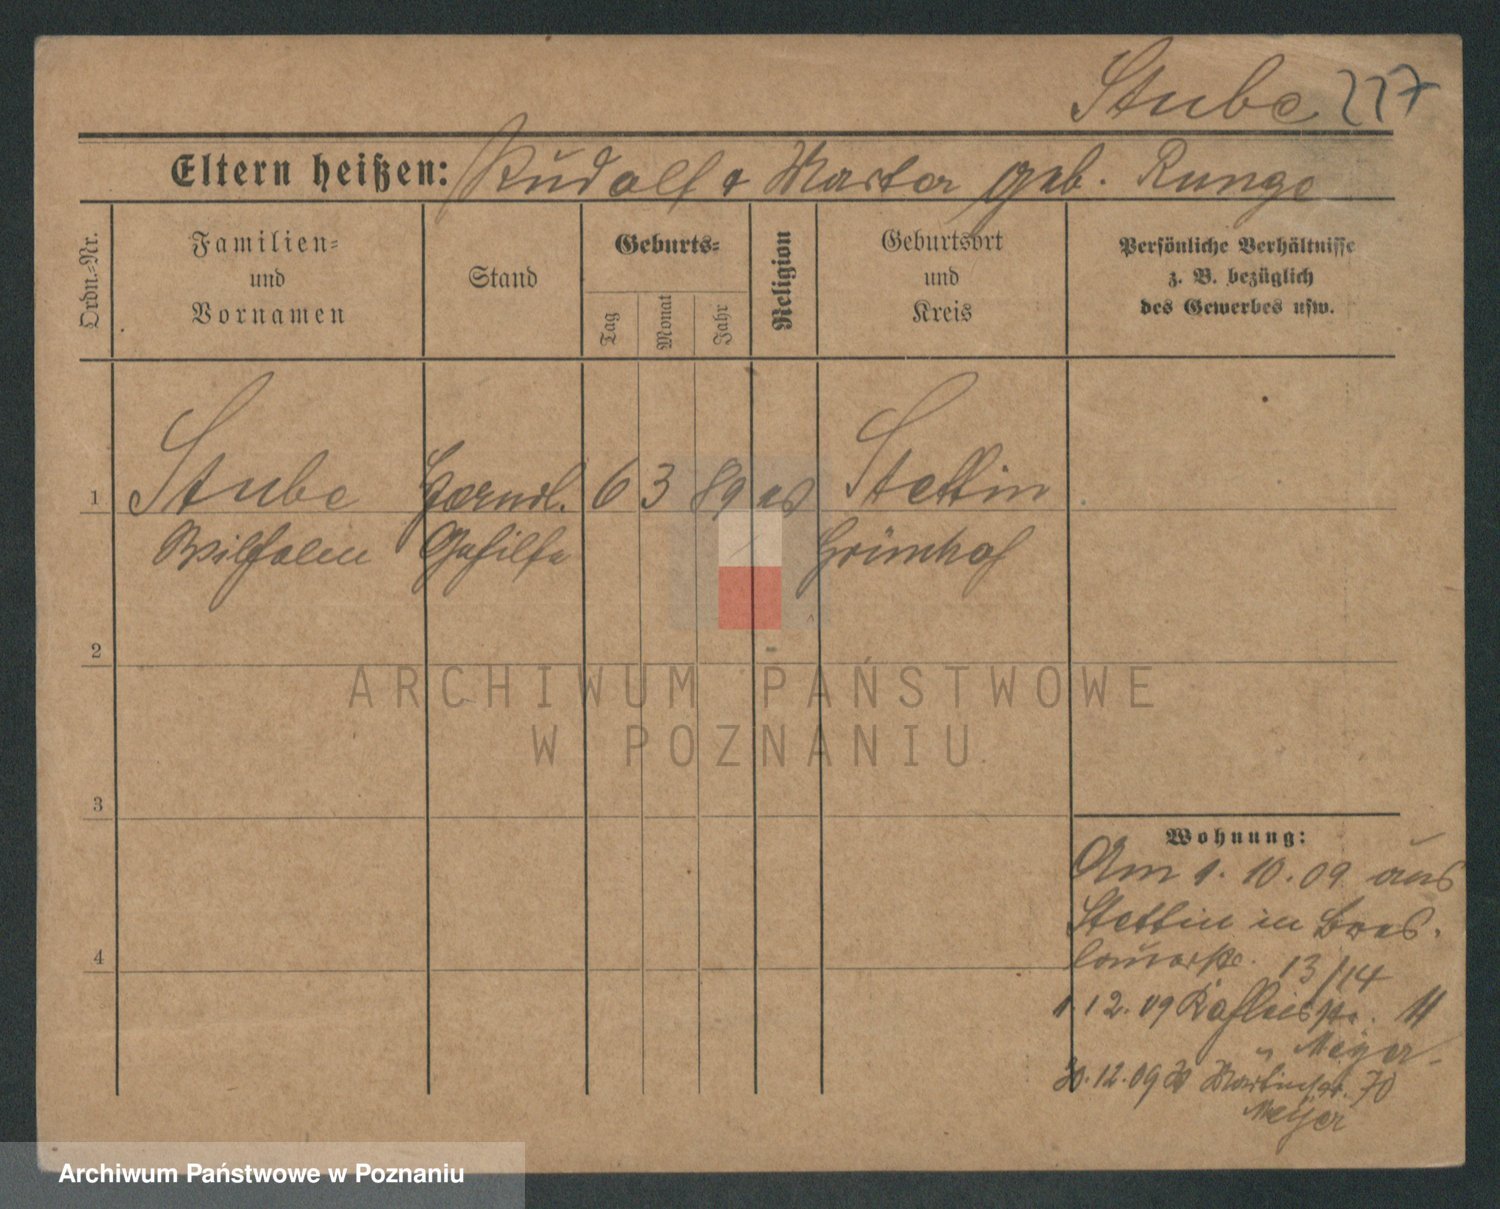 Stube 227
Eltern heißen: Rudolf & Martha geb. Runge
Ordn.=Nr.
Familien=
und
Vornamen
Stand
Geburts=
Tag
Monat
Jahr
Religion
Geburtsort
und
Kreis
Persönliche Verhältnisse
z. B. bezüglich
des Gewerbes usw.
1 Stube Handl. 6 3 89 Stettin
Wilhelm Gehilfe Grünhof
2
ARCHIWUM PAŃSTWOWE
W POZNANIU
3
Wohnung:
Am 1. 10. 09 aus
Stettin in Bres-
lauerstr. 13/14
4
1. 12. 09 11
Meyer
30. 12. 09 Martinstr. 70
Meyer
Archiwum Państwowe w Poznaniu